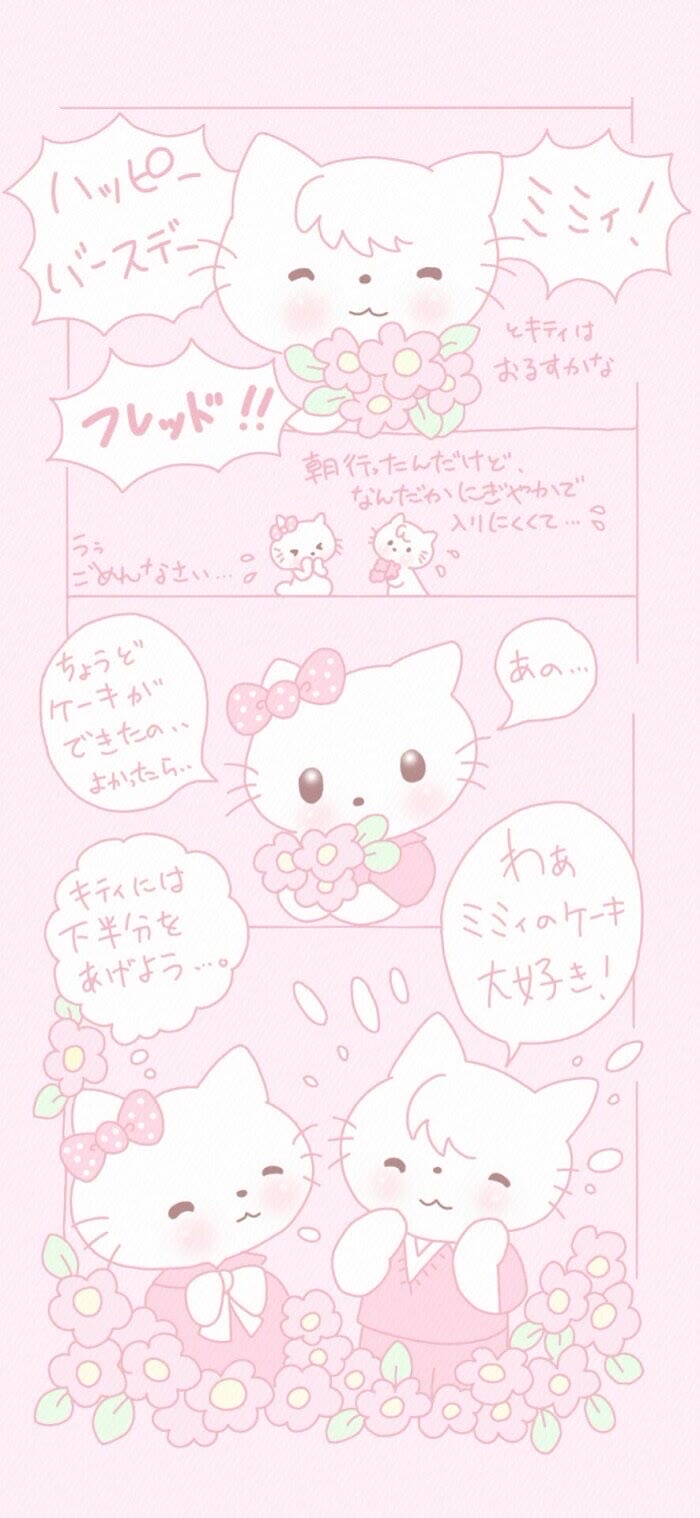 ハッピー
バースデー
ミミィ!
フレッド!!
とキティは
おるすかな
朝行ったんだけど、
なんだかにぎやかで
入りにくくて…
うぅ
ごめんなさい…
あの…
ちょうど
ケーキが
できたの..
よかったら..
わぁ
ミミィのケーキ
大好き!
キティには
下半分を
あげよう…。